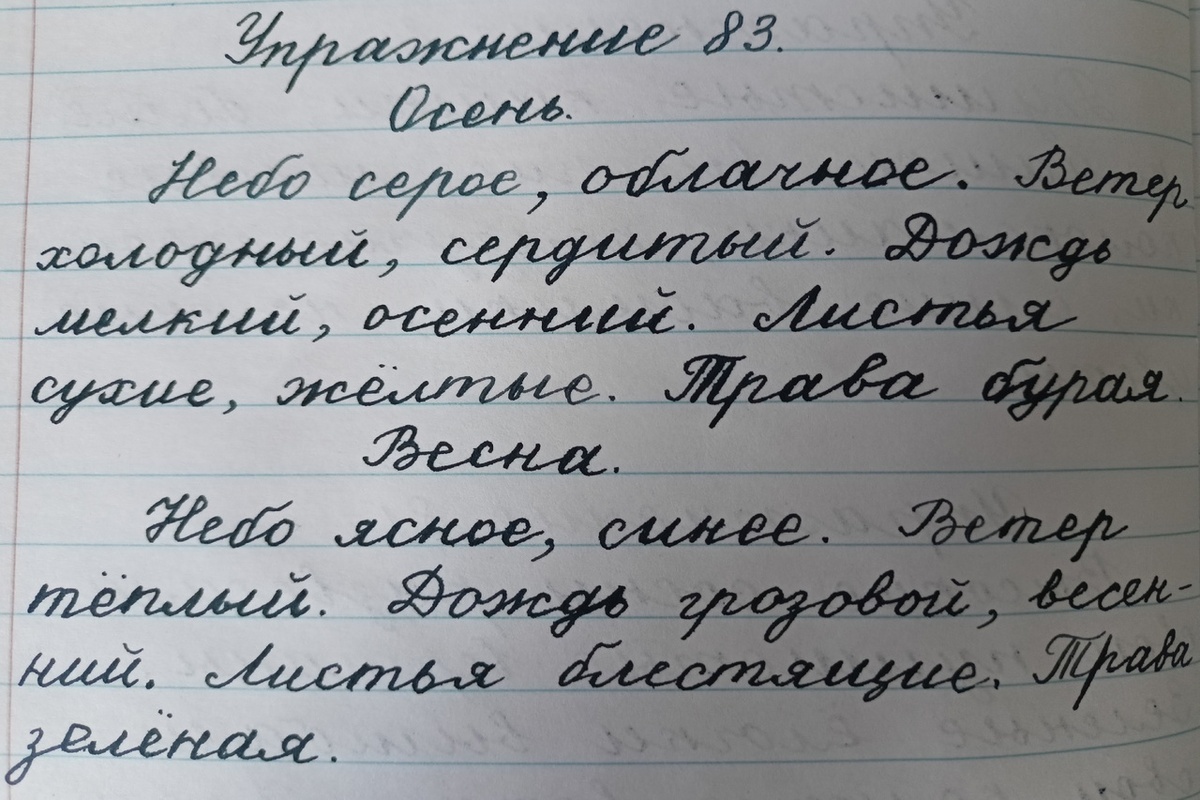 Упражнение 83.
Осень.
Небо серое, облачное. Ветер
холодный, сердитый. Дождь
мелкий, осенний. Листья
сухие, жёлтые. Трава бурая.
Весна.
Небо ясное, синее. Ветер
тёплый. Дождь грозовой, весен-
ний. Листья блестящие. Трава
зелёная.